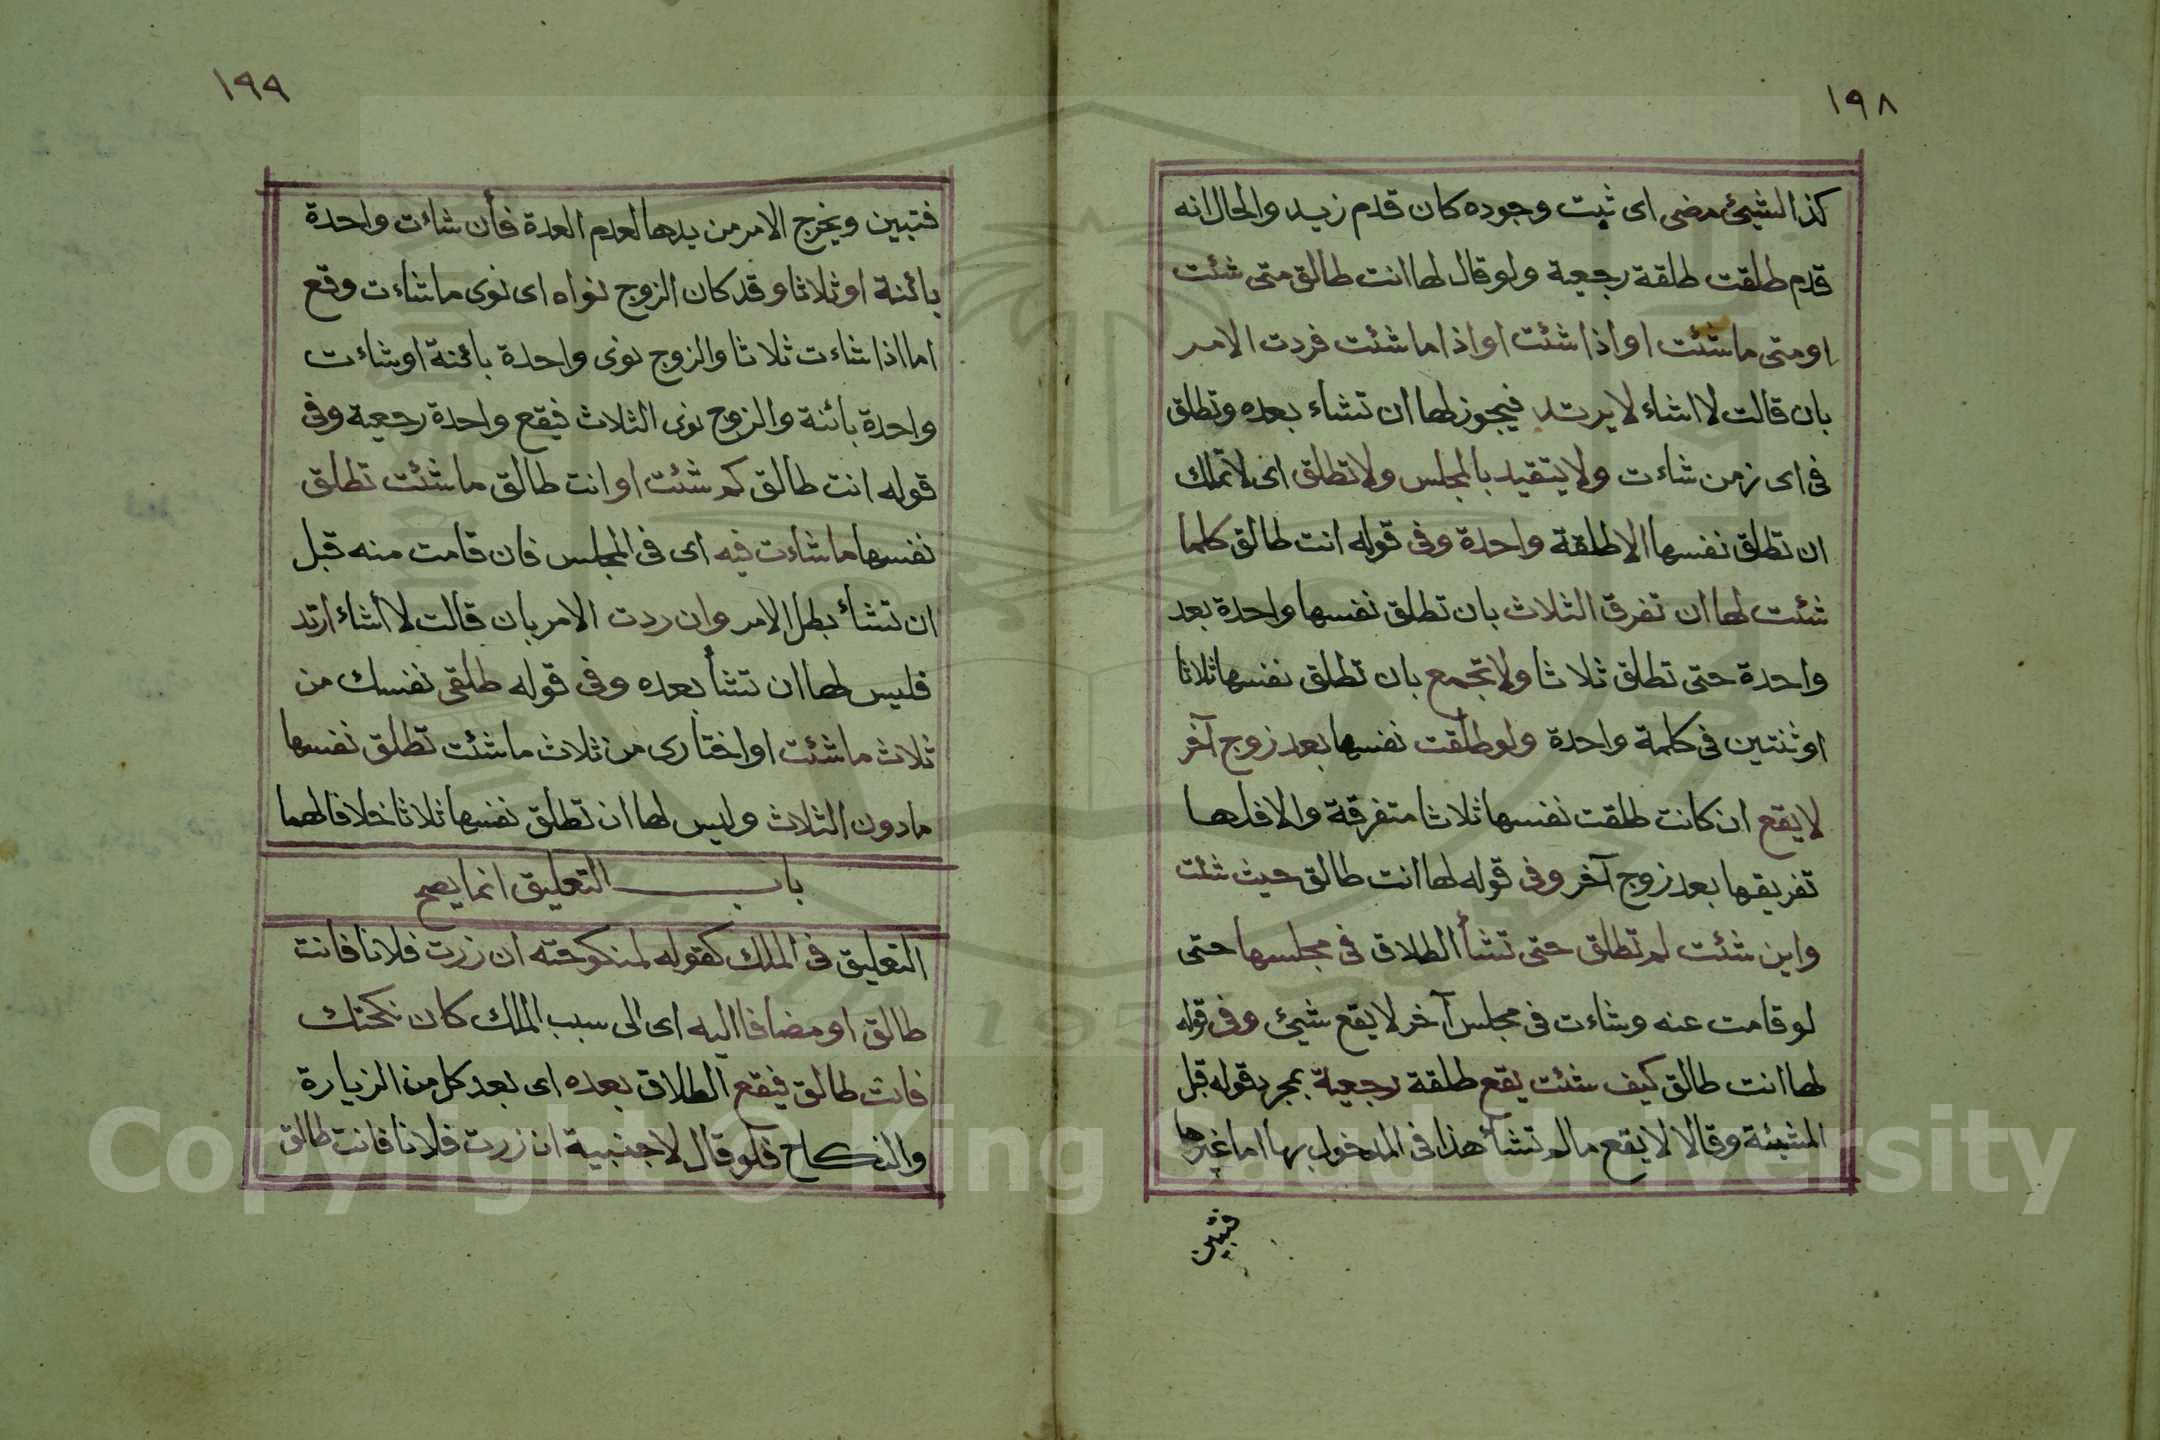 ١٩٨
كذا الشيئ مضى اى ثبت وجوده كان قدم زيد والحال انه
قدم طلقت طلقة رجعية ولو قال لها انت طالق متى شئت
او متى ما شئت او اذا شئت او اذا ما شئت فردت الامر
بان قالت لا اشاء لا يرتد فيجوز لها ان تشاء بعده وتطلق
فى اى زمن شاءت ولا يتقيد بالمجلس ولا تطلق اى لا تملك
ان تطلق نفسها الا طلقة واحدة وفى قوله انت طالق كلما
شئت لها ان تفرق الثلاث بان تطلق نفسها واحدة بعد
واحدة حتى تطلق ثلاثا ولا تجمع بان تطلق نفسها ثلاثا
او ثنتين فى كلمة واحدة ولو طلقت نفسها بعد زوج آخر
لا يقع ان كانت طلقت نفسها ثلاثا متفرقة والا فلها
تفريقها بعد زوج آخر وفى قوله لها انت طالق حيث شئت
واين شئت لم تطلق حتى تشأ الطلاق فى مجلسها حتى
لو قامت عنه وشاءت فى مجلس آخر لا يقع شيئ وفى قوله
لها انت طالق كيف شئت يقع طلقة رجعية بمجرد قوله قبل
المشيئة وقالا لا يقع مالم تشأ هذا فى المدخول بها اما غيرها
فتبين
١٩٩
فتبين ويخرج الامر من يدها لعدم العدة فأن شاءت واحدة
بائنة او ثلاثا وقد كان الزوج نواه اى نوى ما شاءت وقع
اما اذا شاءت ثلاثا والزوج نوى واحدة بائنة او شاءت
واحدة بائنة والزوج نوى الثلاث فيقع واحدة رجعية وفى
قوله انت طالق كم شئت او انت طالق ما شئت تطلق
نفسها ما شاءت فيه اى فى المجلس فان قامت منه قبل
ان تشأ بطل الامر وان ردت الامر بان قالت لا أشاء ارتد
فليس لها ان تشأ بعده وفى قوله طلقى نفسك من
ثلاث ما شئت او اختارى من ثلاث ما شئت تطلق نفسها
مادون الثلاث وليس لها ان تطلق نفسها ثلاثا خلافا لهما
باب التعليق انما يصح
التعليق فى الملك كقوله لمنكوحته ان زرت فلانا فانت
طالق او مضافا اليه اى الى سبب الملك كان نكحتك
فانت طالق فيقع الطلاق بعده اى بعد كل من الزيارة
والنكاح فلو قال لاجنبية ان زرت فلانا فانت طالق
Copyright © King Saud University